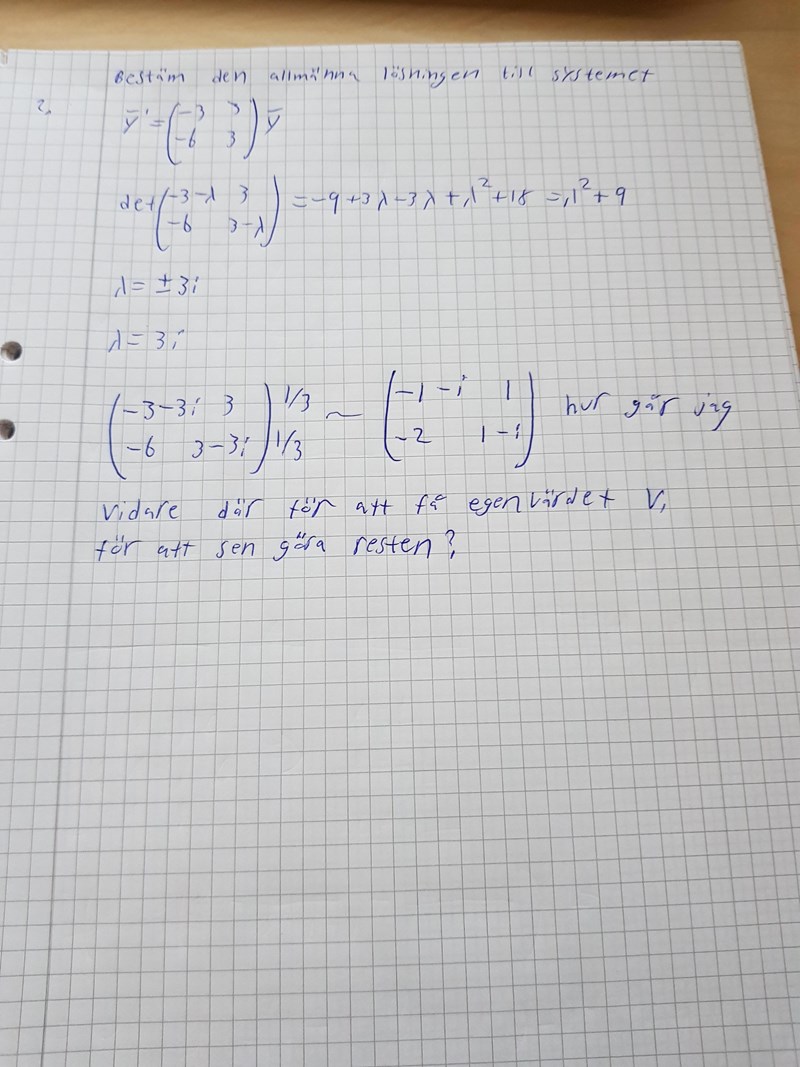 Bestäm den allmänna lösningen till systemet
2. ȳ' = (-3 3; -6 3) ȳ
det(-3-λ 3; -6 3-λ) = -9+3λ-3λ+λ²+18 = λ²+9
λ = ±3i
λ = 3i
(-3-3i 3; -6 3-3i) 1/3 1/3 ~ (-1-i 1; -2 1-i) hur går jag
vidare där för att få egenvärdet V,
för att sen göra resten?